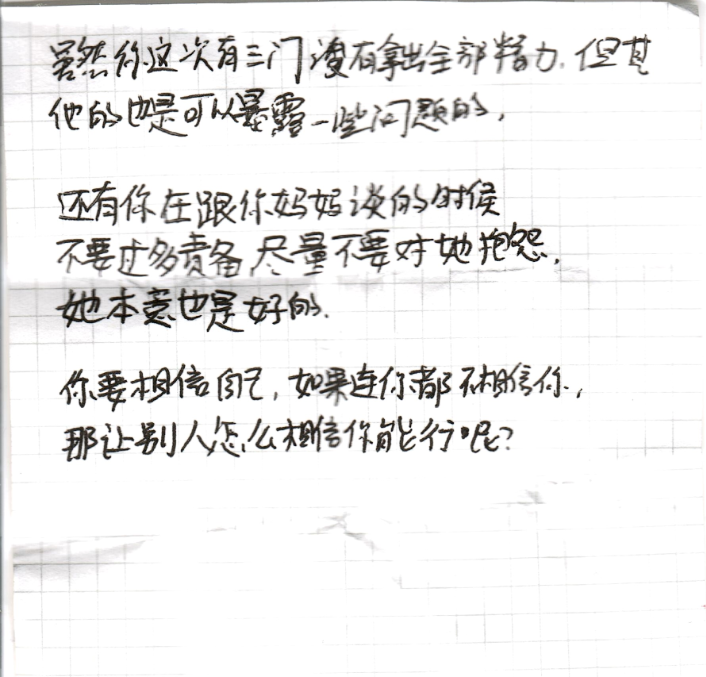 虽然你这次有三门没有拿出全部精力，但其
他的也是可以暴露一些问题的，
还有你在跟你妈妈谈的时候
不要过多责备，尽量不要对她抱怨，
她本意也是好的。
你要相信自己，如果连你都不相信你，
那让别人怎么相信你能行呢？